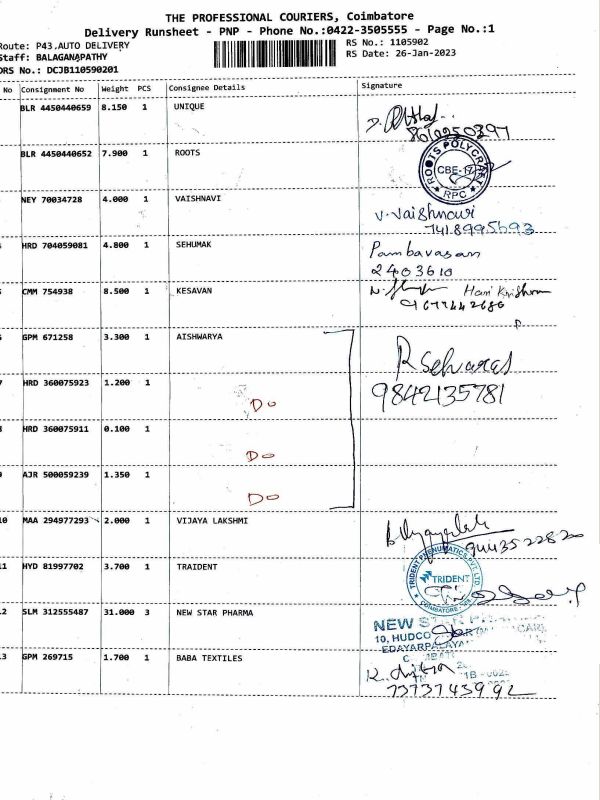 THE PROFESSIONAL COURIERS, Coimbatore
Delivery Runsheet - PNP - Phone No.:0422-3505555 - Page No.:1
Route: P43,AUTO DELIVERY RS No.: 1105902
Staff: BALAGANAPATHY RS Date: 26-Jan-2023
DRS No.: DCJB110590201
No Consignment No Weight PCS Consignee Details Signature
BLR 4450440659 8.150 1 UNIQUE
BLR 4450440652 7.900 1 ROOTS
ROOTS POLYCRAFT CBE-17 RPC
NEY 70034728 4.000 1 VAISHNAVI
V. Vaishnavi
7418995693
HRD 704059081 4.800 1 SEHUMAK
Pambavasan
2403610
CMM 754938 8.500 1 KESAVAN
GPM 671258 3.300 1 AISHWARYA
HRD 360075923 1.200 1
9842135781
Do
HRD 360075911 0.100 1
Do
AJR 500059239 1.350 1
Do
10 MAA 294977293 2.000 1 VIJAYA LAKSHMI
11 HYD 81997702 3.700 1 TRAIDENT
TRIDENT PNEUMATICS PVT LTD
TRIDENT
COIMBATORE
12 SLM 312555487 31.000 3 NEW STAR PHARMA
NEW STAR
10, HUDCO
EDAYARPALAYA
13 GPM 269715 1.700 1 BABA TEXTILES
7373743992